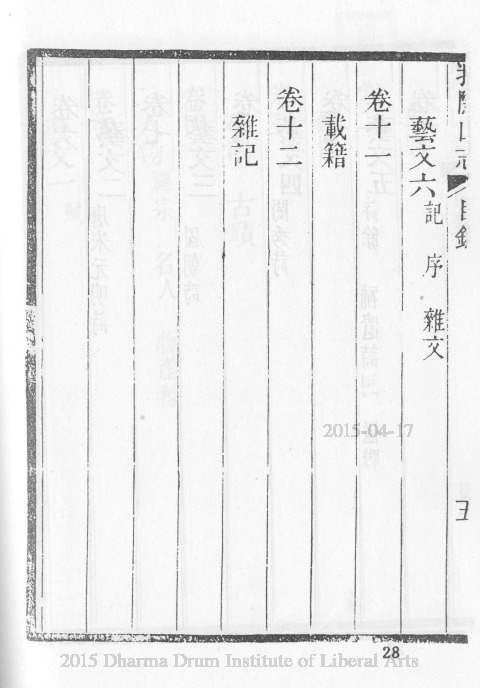 藝文六 記 序 雜文
卷十一
載籍
卷十二
雜記
目錄
五
2015-04-17
28
2015 Dharma Drum Institute of Liberal Arts